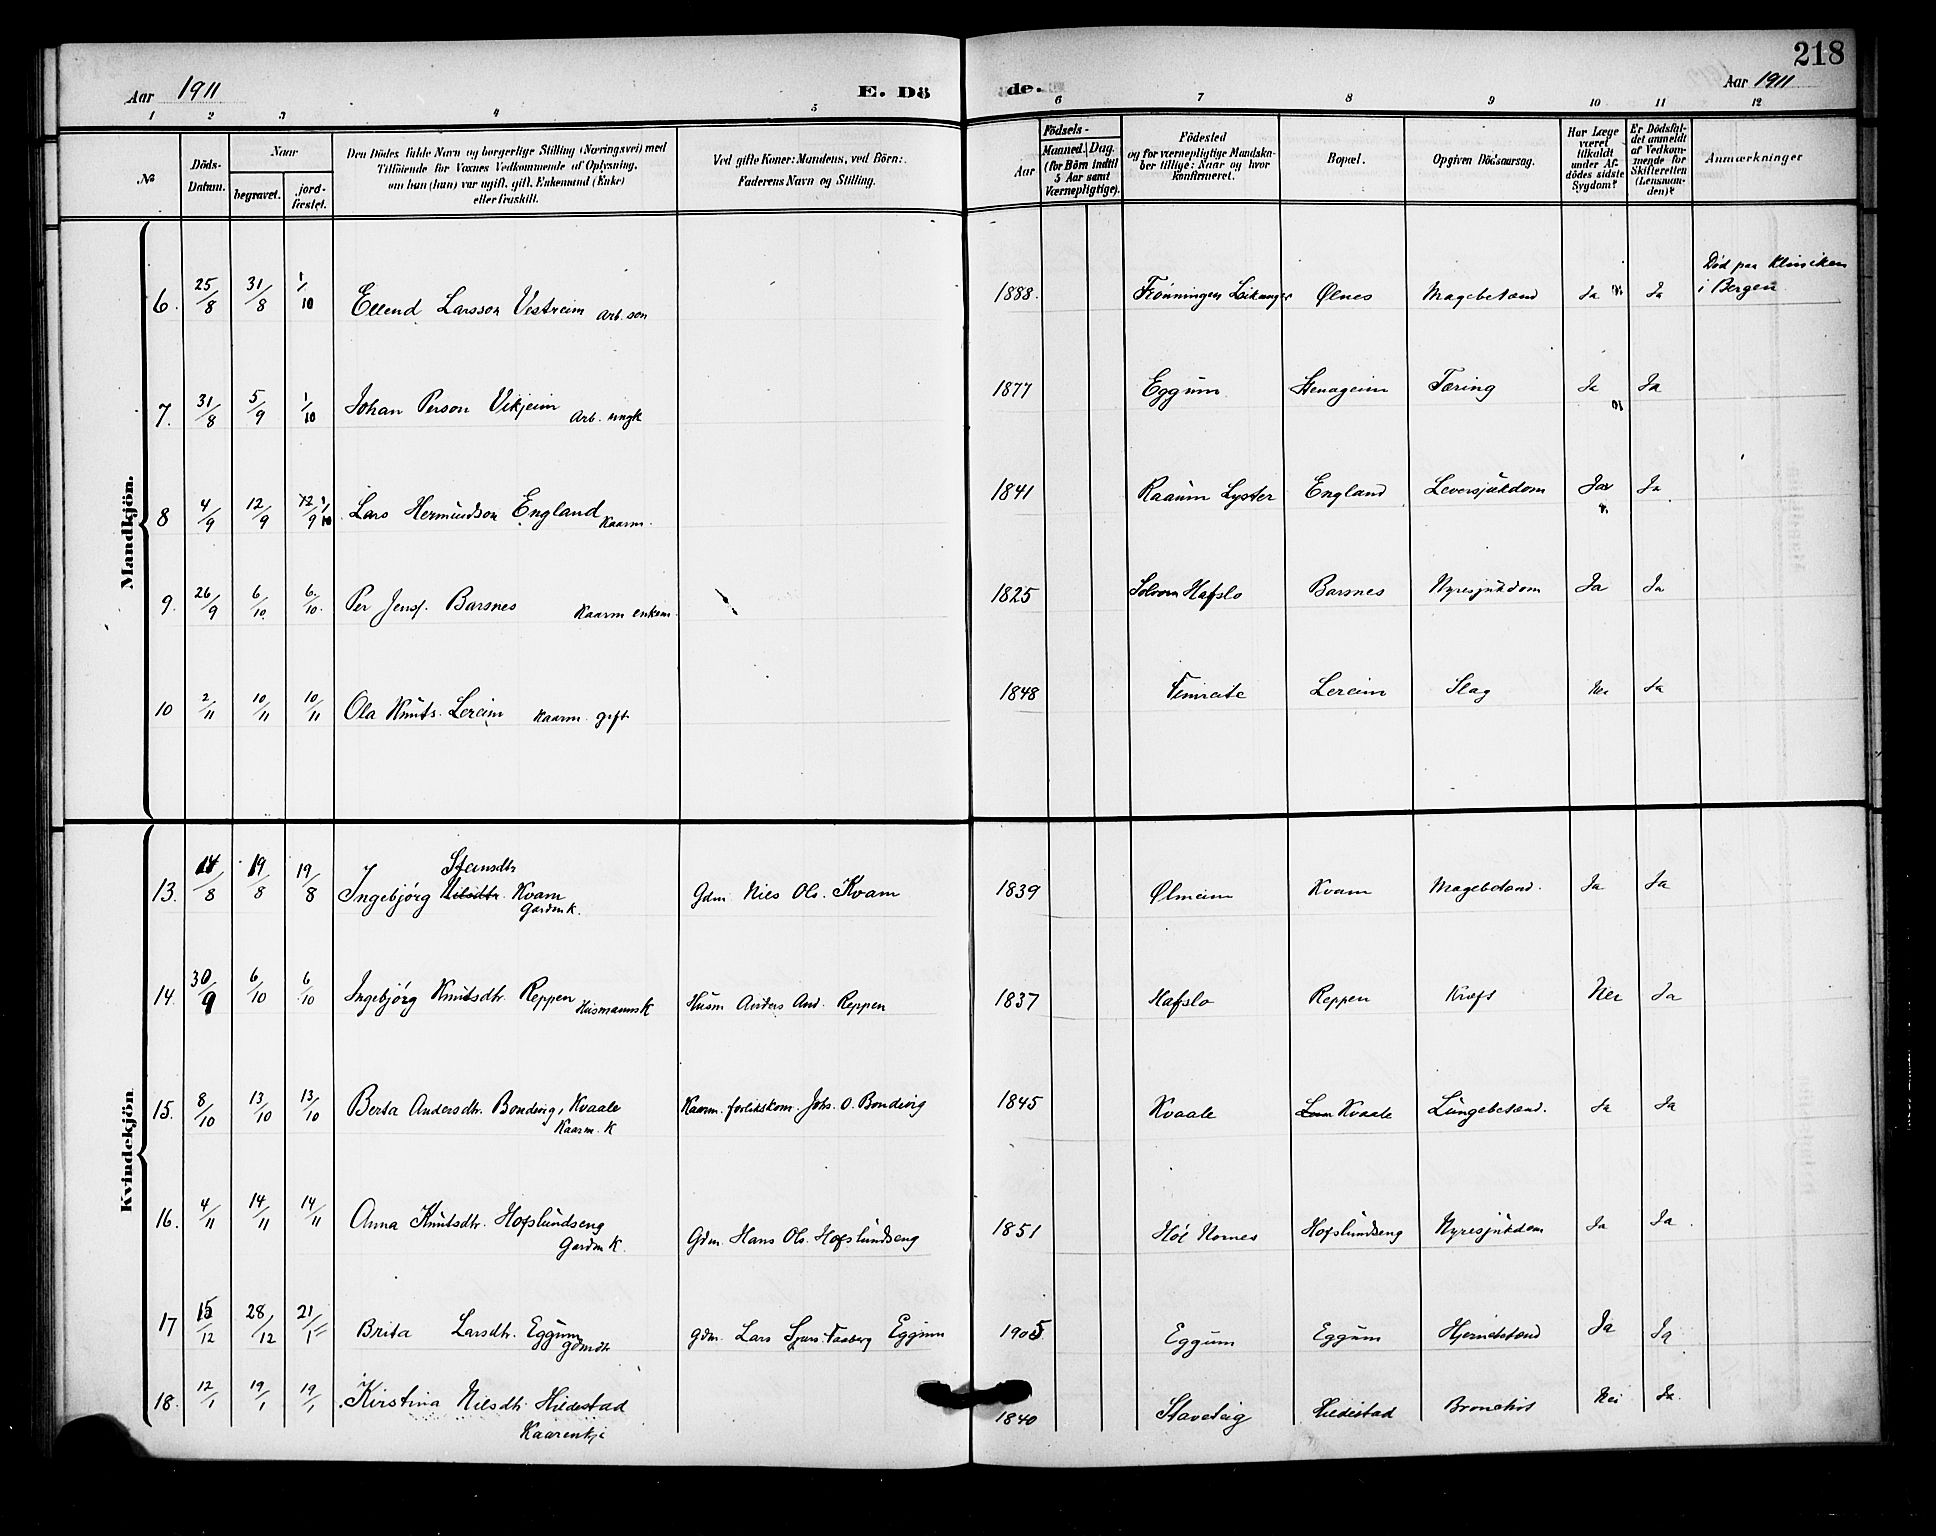 218
Aar 1911 E. Dö de. Aar 1911
1 2 3 4 5 6 7 8 9 10 11 12
№
Döds-Datum.
Naar
begravet.
jord-fæstet.
Den Dödes fulde Navn og borgerlige Stilling (Næringsvei) med
Tilföiende for Voxnes Vedkommende af Oplysning,
om hun (han) var ugift, gift, Enkemand (Enke)
eller fraskilt.
Ved gifte Koner: Mandens, ved Börn:
Faderens Navn og Stilling.
Födsels-
Aar
Maaned. Dag.
(for Börn indtil
5 Aar samt
Værnepligtige).
Födested
og for værnepligtige Mandska-
ber tillige: Naar og hvor
konfirmeret.
Bopæl.
Opgiven Dödsaarsag.
Har Læge
været
tilkaldt
under Af-
dödes sidste
Sygdom?
Er Dödsfal-
det anmeldt
af Vedkom-
mende for
Skifteretten
(Lensman-
den)?
Anmærkninger
Mandkjön.
6. 25/8 31/8 1/10 Ellend Larsson Vestreim Arb. son 1888. Frønningen Leikanger Ølnes Magebetænd Ja Ja Død paa Kliniken
i Bergen
7. 31/8 5/9 1/10 Johan Person Vikjeim Arb. ungk 1877 Eggum Stenageim Tæring Ja Ja
8 4/9 12/9 12/9 1/10 Lars Hermundson England Kaarm. 1841 Raaum Lyster England Leversjukdom Ja Ja
9. 26/9 6/10. 6/10. Per Jensf. Barsnes Kaarm enkem. 1825 Solvorn Hafslo Barsnes Nyresjukdom Ja Ja
10 2/11 10/11 10/11 Ola Knuts. Lereim Kaarm gift 1848 Timreite Lereim Slag Nei Ja
Kvindekjön
13. 14/8 19/8 19/8 Ingebjørg Nilsdtr. Steinsdtr Kvam Gardm k. Gdm Nils Ols. Kvam 1839 Ølmeim Kvam Magebetænd. Ja Ja
14. 30/9 6/10 6/10 Ingebjørg Knutsdtr. Reppen Husmannsk Husm Anders And. Reppen 1837 Hafslo Reppen Kræft Nei Ja
15. 8/10 13/10 13/10 Berta Andersdtr. Bondevig, Kvaale Kaarm. K Kaarm. forlikskom. Johs. O. Bondevig 1845 Kvaale Kvaale Lungebetænd. Ja Ja
16. 4/11 14/11 14/11 Anna Knutsdtr. Hofslundseng Gardm K. Gdm. Hans Ols. Hofslundseng 1851 Høl Nornes Hofslundseng Nyresjukdom Ja Ja
17 15/12 28/12 21/1 Brita Larsdtr. Eggum Gdmdtr Gdm. Lars Sjurs. Faaberg Eggum 1905 Eggum Eggum Hjernebetænd Ja Ja
18. 12/1 19/1 19/1 Kirstina Nilsdtr Hildestad 1840 Staveteig Hildestad Bronchit Nei Ja
Kaarenkje